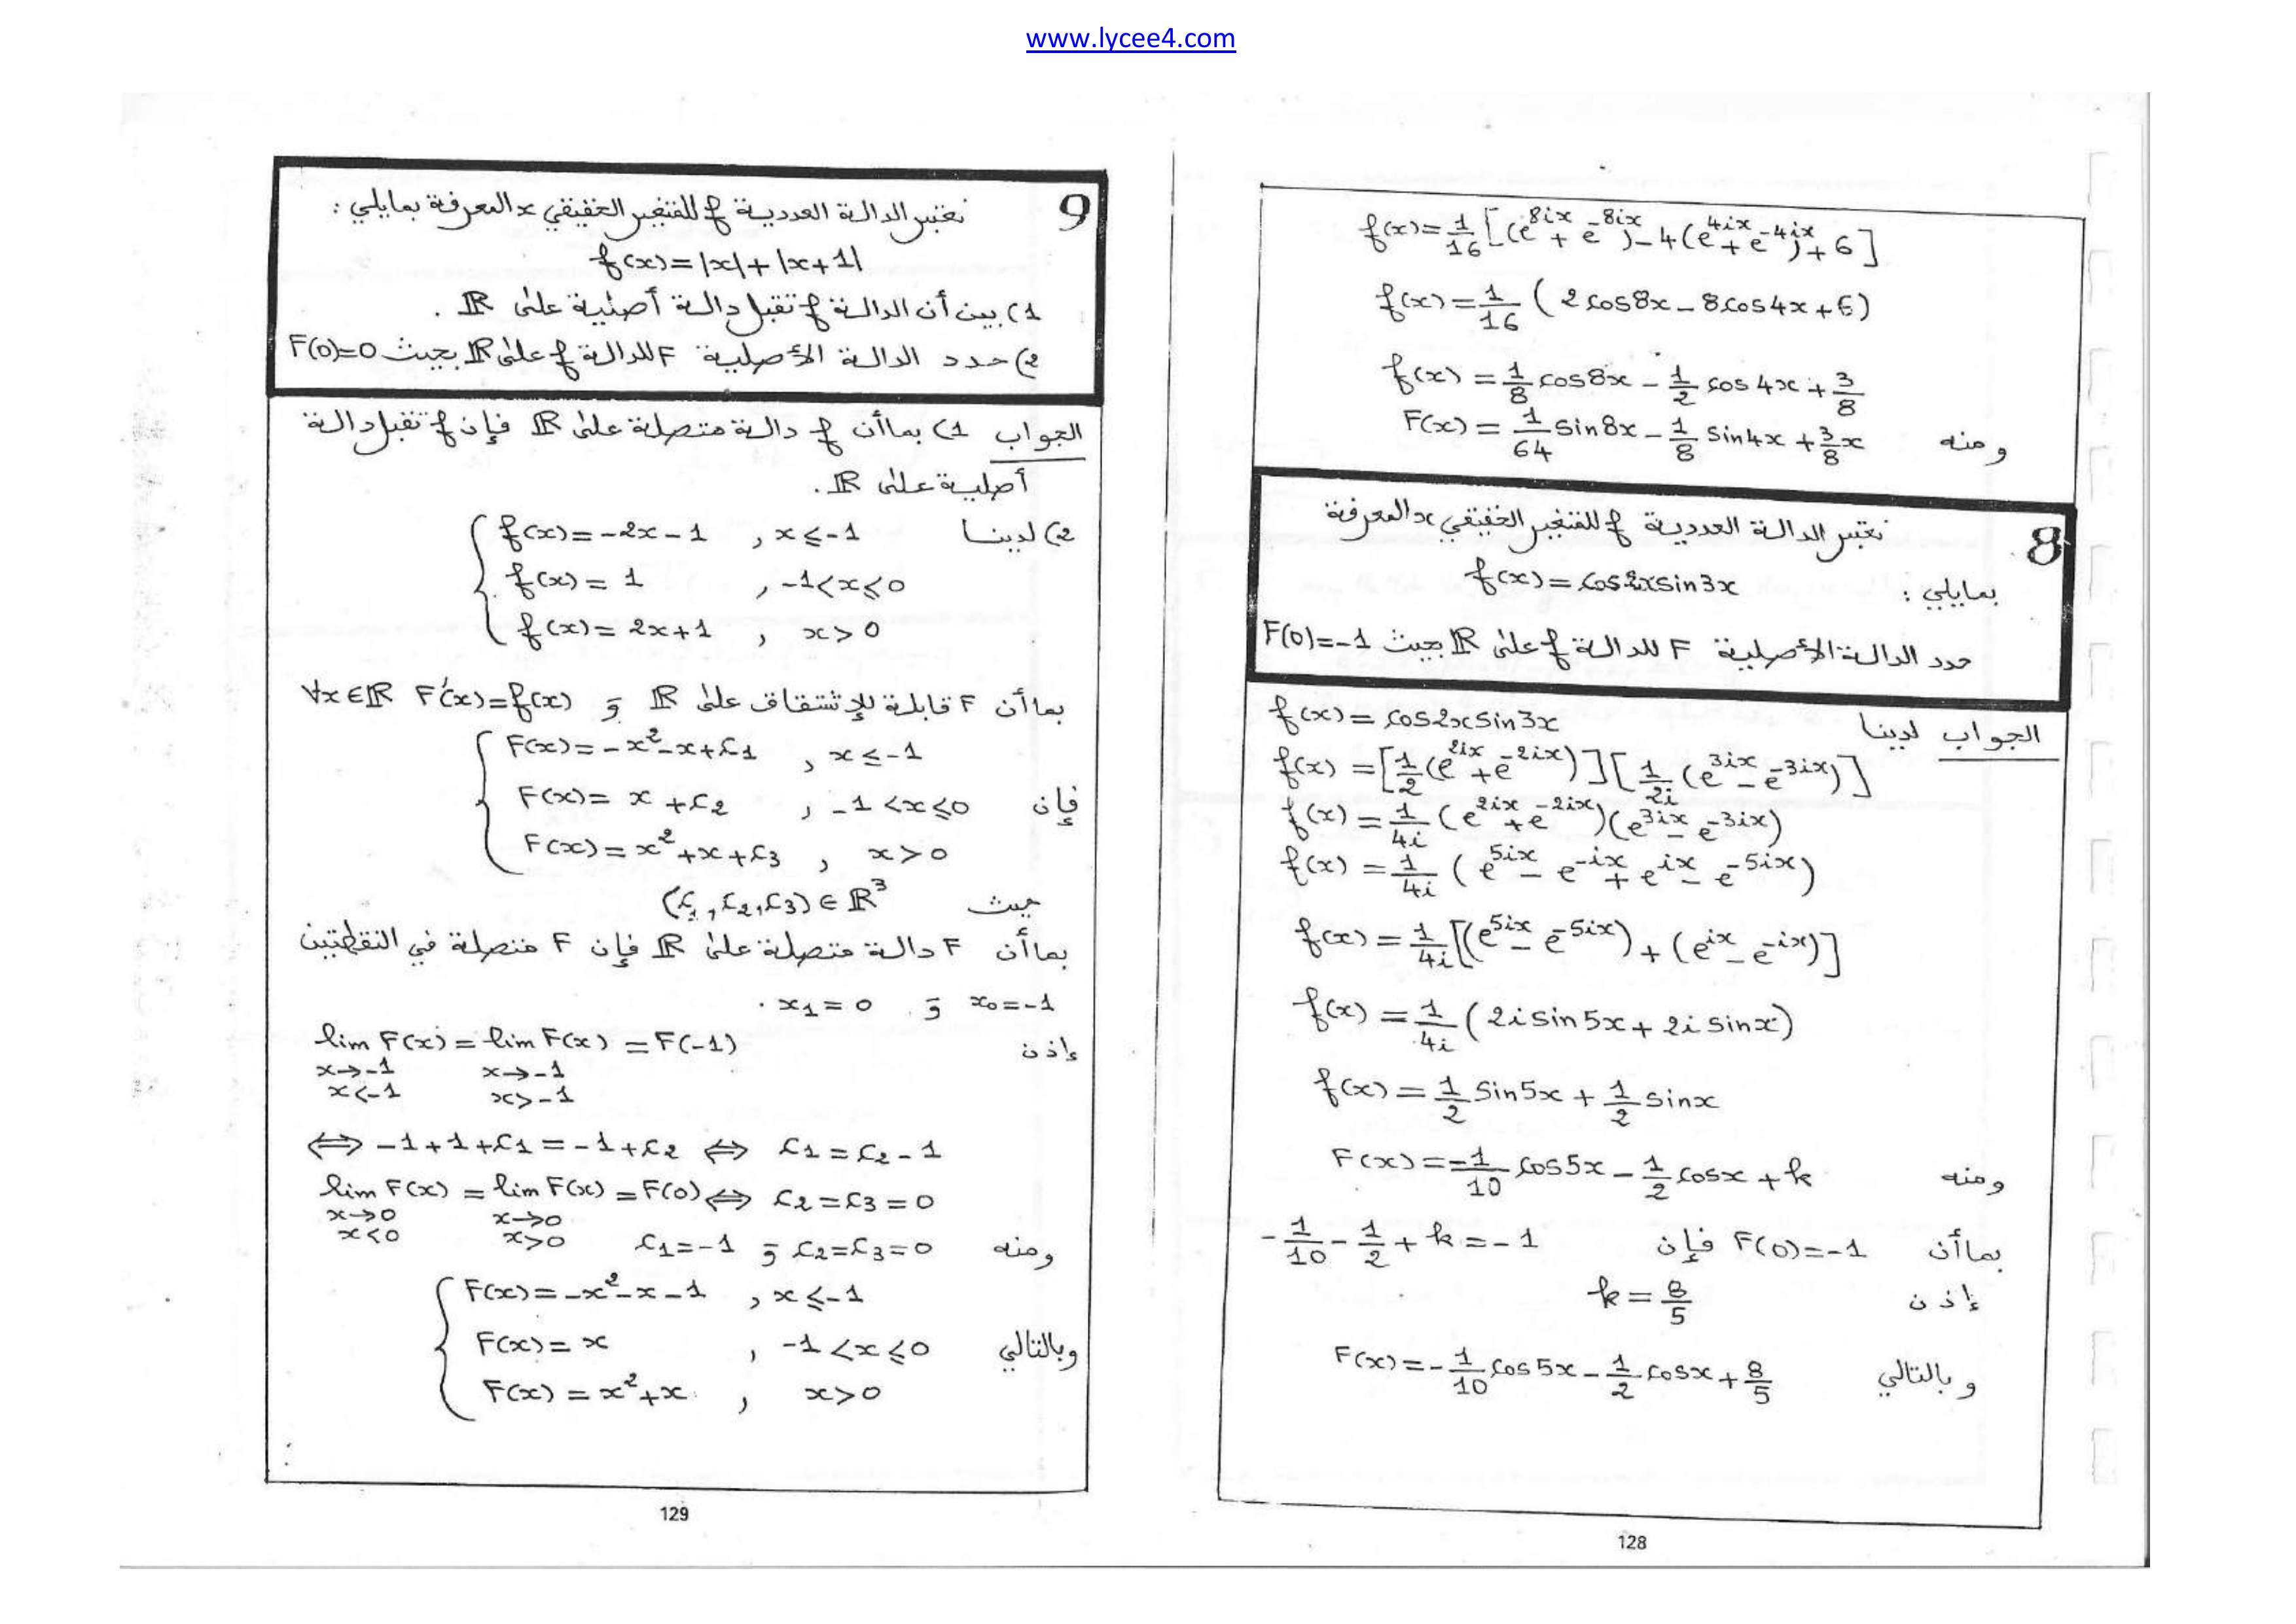 www.lycee4.com
f(x)=1/16[(e^{8ix}+e^{-8ix})-4(e^{4ix}+e^{-4ix})+6]
f(x)=1/16 (2cos8x-8cos4x+6)
f(x)=1/8 cos8x-1/2 cos4x+3/8
ومنه F(x)=1/64 sin8x-1/8 sin4x+3/8 x
8 نعتبر الدالة العددية f للمتغير الحقيقي x المعرفة
بمايلي : f(x)=cos2xsin3x
حدد الدالة الأصلية F للدالة f على ℝ بحيث F(0)=-1
الجواب لدينا f(x)=cos2xsin3x
f(x)=[1/2(e^{2ix}+e^{-2ix})][1/2i(e^{3ix}-e^{-3ix})]
f(x)=1/4i(e^{2ix}+e^{-2ix})(e^{3ix}-e^{-3ix})
f(x)=1/4i(e^{5ix}-e^{-ix}+e^{ix}-e^{-5ix})
f(x)=1/4i[(e^{5ix}-e^{-5ix})+(e^{ix}-e^{-ix})]
f(x)=1/4i(2isin5x+2isinx)
f(x)=1/2 sin5x+1/2 sinx
ومنه F(x)=-1/10 cos5x-1/2 cosx+k
بما أن F(0)=-1 فإن -1/10-1/2+k=-1
إذن k=8/5
وبالتالي F(x)=-1/10 cos5x-1/2 cosx+8/5
128
9 نعتبر الدالة العددية f للمتغير الحقيقي x المعرفة بمايلي :
f(x)=|x|+|x+1|
1) بين أن الدالة f تقبل دالة أصلية على ℝ .
2) حدد الدالة الأصلية F للدالة f على ℝ بحيث F(0)=0
الجواب 1) بما أن f دالة متصلة على ℝ فإن f تقبل دالة
أصلية على ℝ.
2) لدينا f(x)=-2x-1 , x≤-1
f(x)=1 , -1<x≤0
f(x)=2x+1 , x>0
بما أن F قابلة للإشتقاق على ℝ و ∀x∈ℝ F'(x)=f(x)
F(x)=-x²-x+c₁ , x≤-1
فإن F(x)=x+c₂ , -1<x≤0
F(x)=x²+x+c₃ , x>0
حيث (c₁,c₂,c₃)∈ℝ³
بما أن F دالة متصلة على ℝ فإن F متصلة في النقطتين
x₀=-1 و x₁=0 .
إذن lim F(x)=lim F(x)=F(-1)
x→-1 x→-1
x<-1 x>-1
⇔ -1+1+c₁=-1+c₂ ⇔ c₁=c₂-1
lim F(x)=lim F(x)=F(0) ⇔ c₂=c₃=0
x→0 x→0
x<0 x>0
ومنه c₂=c₃=0 و c₁=-1
F(x)=-x²-x-1 , x≤-1
وبالتالي F(x)=x , -1<x≤0
F(x)=x²+x , x>0
129